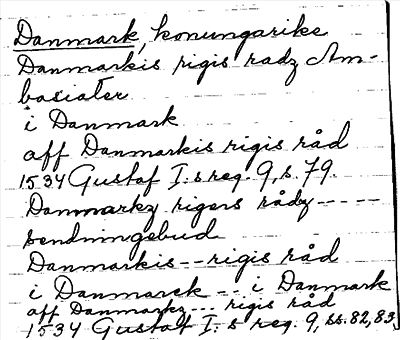 Danmark, konungarike
Danmarkis rigis radz Am-
basiater
i Danmark
aff Danmarkis rigis råd
1534 Gustaf I:s reg. 9, s. 79.
Danmarkz rigens rådz -----
sendningebud
Danmarkis -- rigis råd
i Danmarck -- i Danmark
aff Danmarkz --- rigis råd
1534 Gustaf I:s reg. 9, ss. 82, 83.